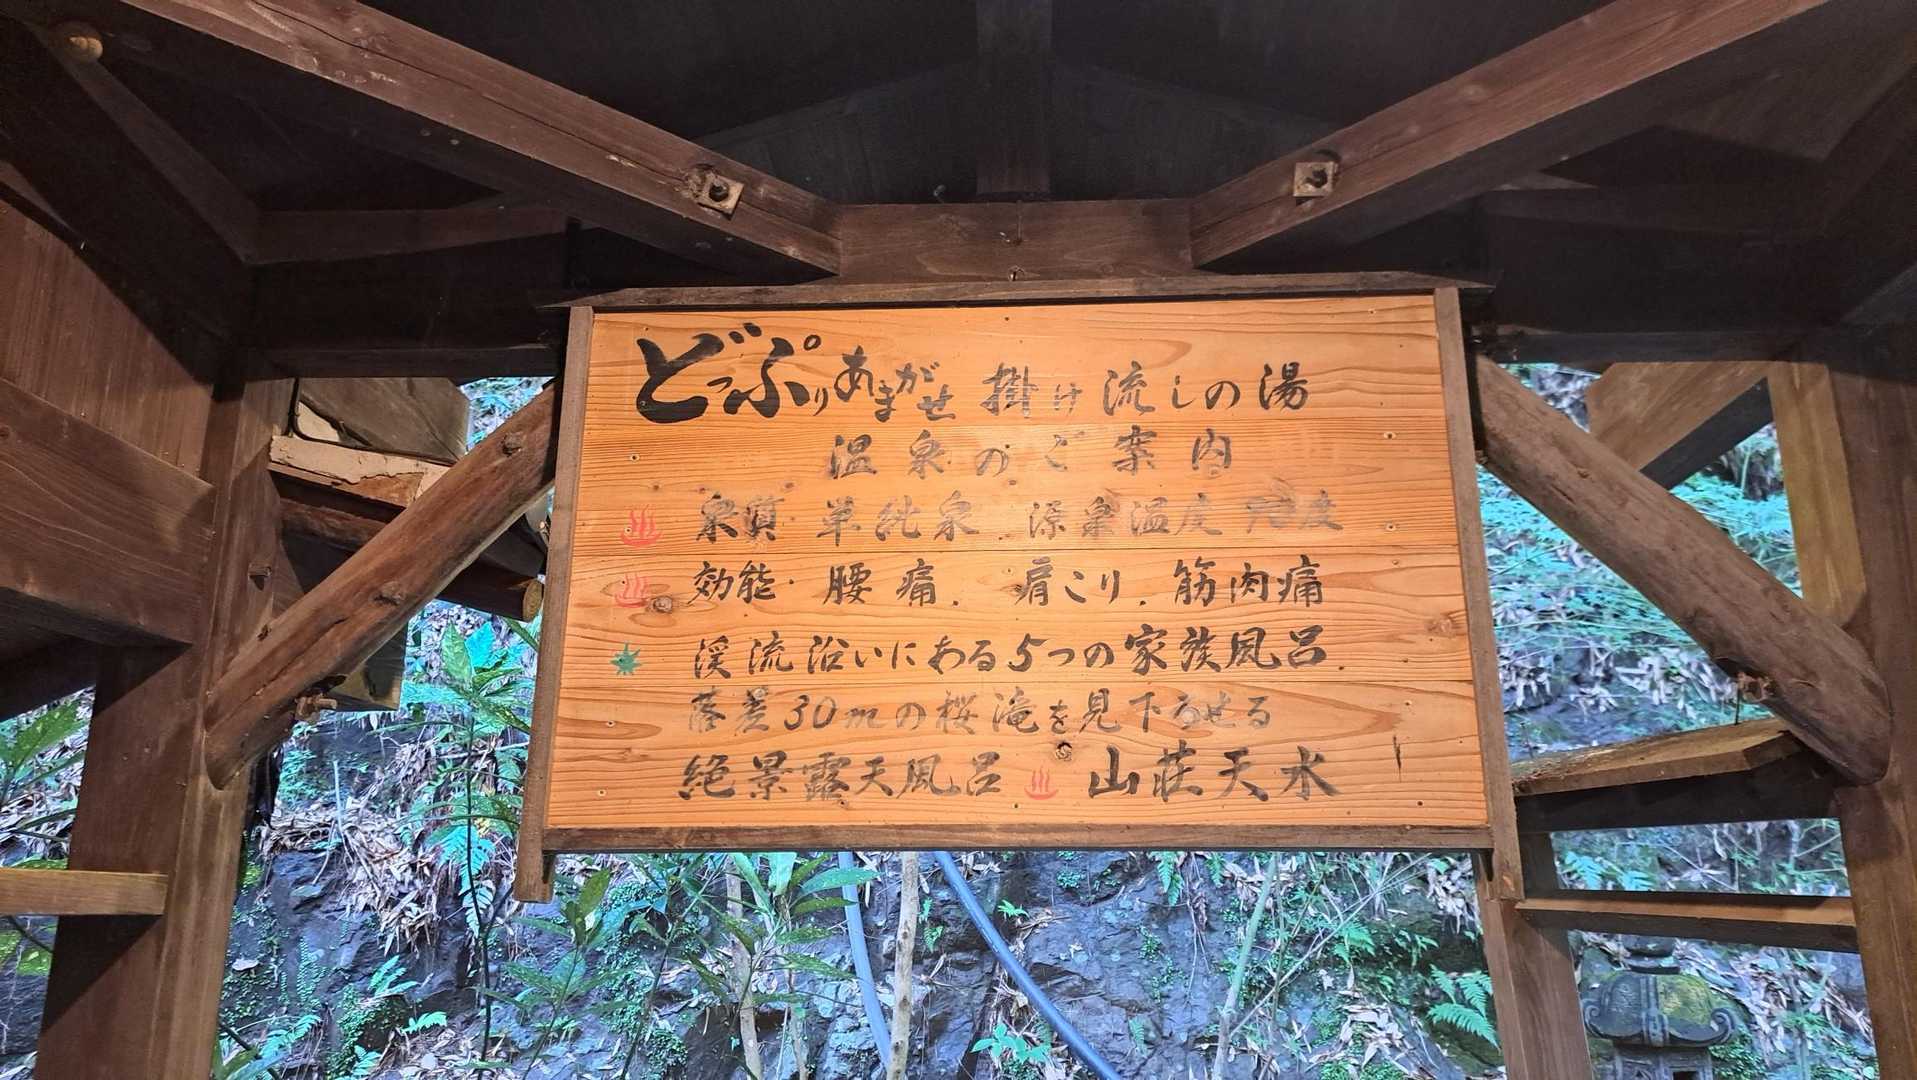 どっぷりあまがせ掛け流しの湯
温泉のご案内
泉質 単純泉 源泉温度 度
効能 腰痛、肩こり、筋肉痛
渓流沿いにある5つの家族風呂
落差30mの桜滝を見下ろせる
絶景露天風呂 山荘天水